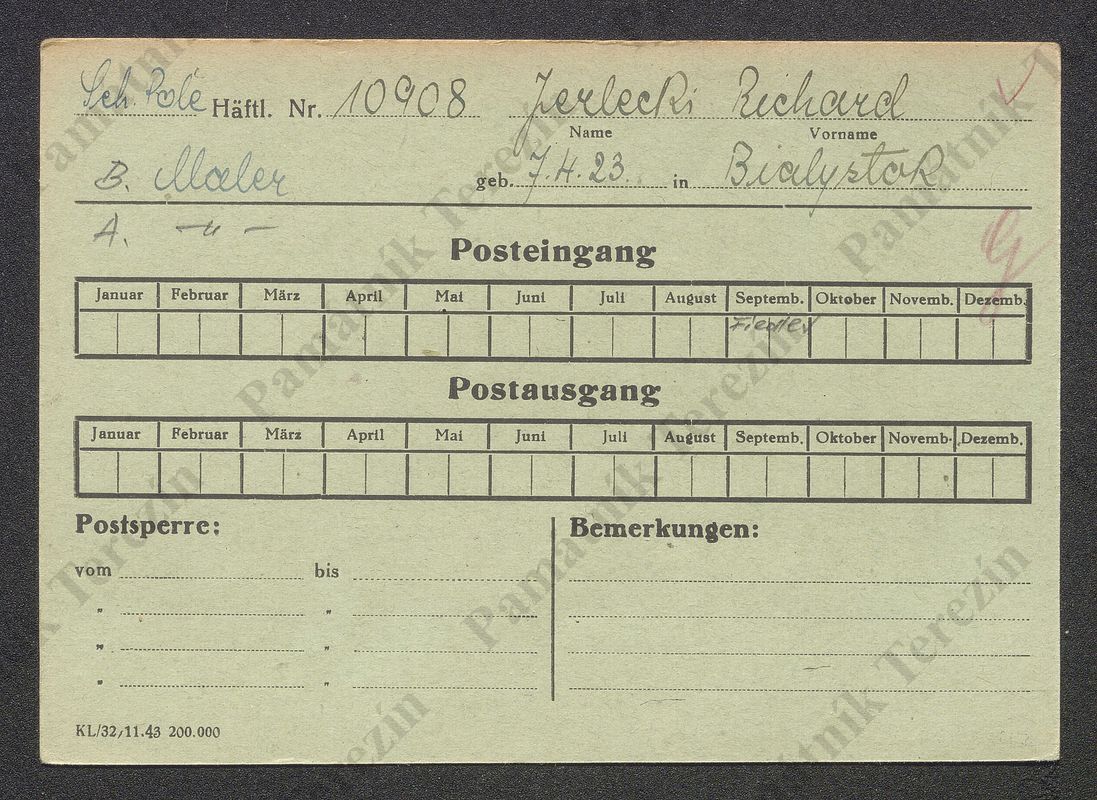 Sch. Pole Häftl. Nr. 10908 Jerlecki Richard
Name Vorname
B. Maler geb. 7.4.23. in Bialystok
A. -"-
Posteingang
Januar Februar März April Mai Juni Juli August Septemb. Oktober Novemb. Dezemb.
Fiedler
Postausgang
Januar Februar März April Mai Juni Juli August Septemb. Oktober Novemb. Dezemb.
Postsperre: Bemerkungen:
vom bis
" "
" "
" "
KL/32/11.43 200.000
Památník Terezín
Památník Terezín
Památník Terezín
Památník Terezín